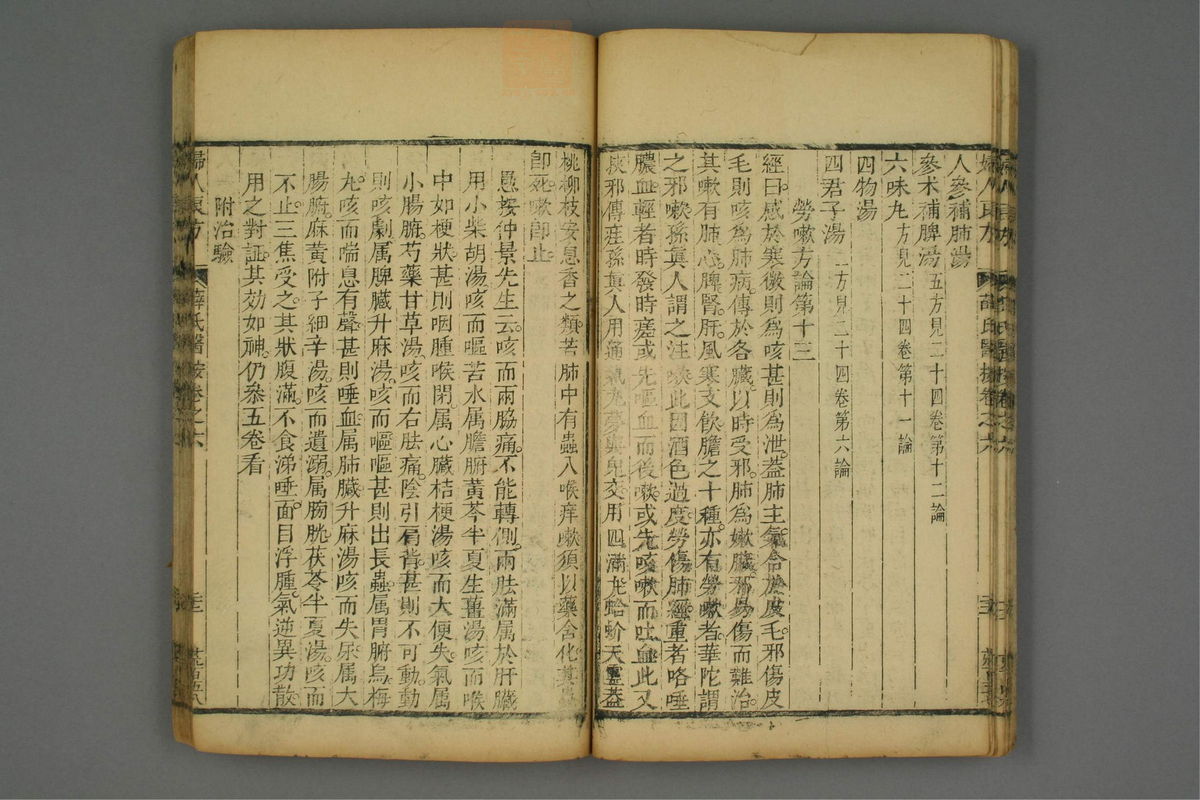 人參補肺湯
參术補脾湯 五方見二十四卷第十二論
六味丸 方見二十四卷第十一論
四物湯
四君子湯 二方見二十四卷第六論
勞嗽方論第十三
經曰感於寒微則為咳甚則為泄蓋肺主氣合於皮毛邪傷皮
毛則咳為肺病傳於各臟以時受邪肺為嫩臟邪易傷而難治
其嗽有肺心脾腎肝風寒支飲膽之十種亦有勞嗽者華陀謂
之邪嗽孫真人謂之注嗽此因酒色過度勞傷肺經重者咯唾
膿血輕者時發時瘥或先嘔血而後嗽或先咳嗽而吐血此又
挾邪傳疰孫真人用通氣丸夢與鬼交用四滿丸蛤蚧天靈蓋
桃柳枝安息香之類若肺中有蟲入喉痒嗽須以藥含化其蟲
卽死嗽卽止
愚按仲景先生云咳而兩脇痛不能轉側兩胠滿属於肝臟
用小柴胡湯咳而嘔苦水属膽腑黃芩半夏生薑湯咳而喉
中如梗狀甚則咽腫喉閉属心臟桔梗湯咳而大便失氣属
小腸腑芍藥甘草湯咳而右胠痛陰引肩背甚則不可動動
則咳劇属脾臟升麻湯咳而嘔嘔甚則出長蟲属胃腑烏梅
丸咳而喘息有聲甚則唾血属肺臟升麻湯咳而失尿属大
腸腑麻黃附子細辛湯咳而遺溺属膀胱茯苓半夏湯咳而
不止三焦受之其狀腹滿不食涕唾面目浮腫氣逆異功散
用之對証其効如神仍叅五卷看
附治驗
婦人良方 薛氏醫按卷之六